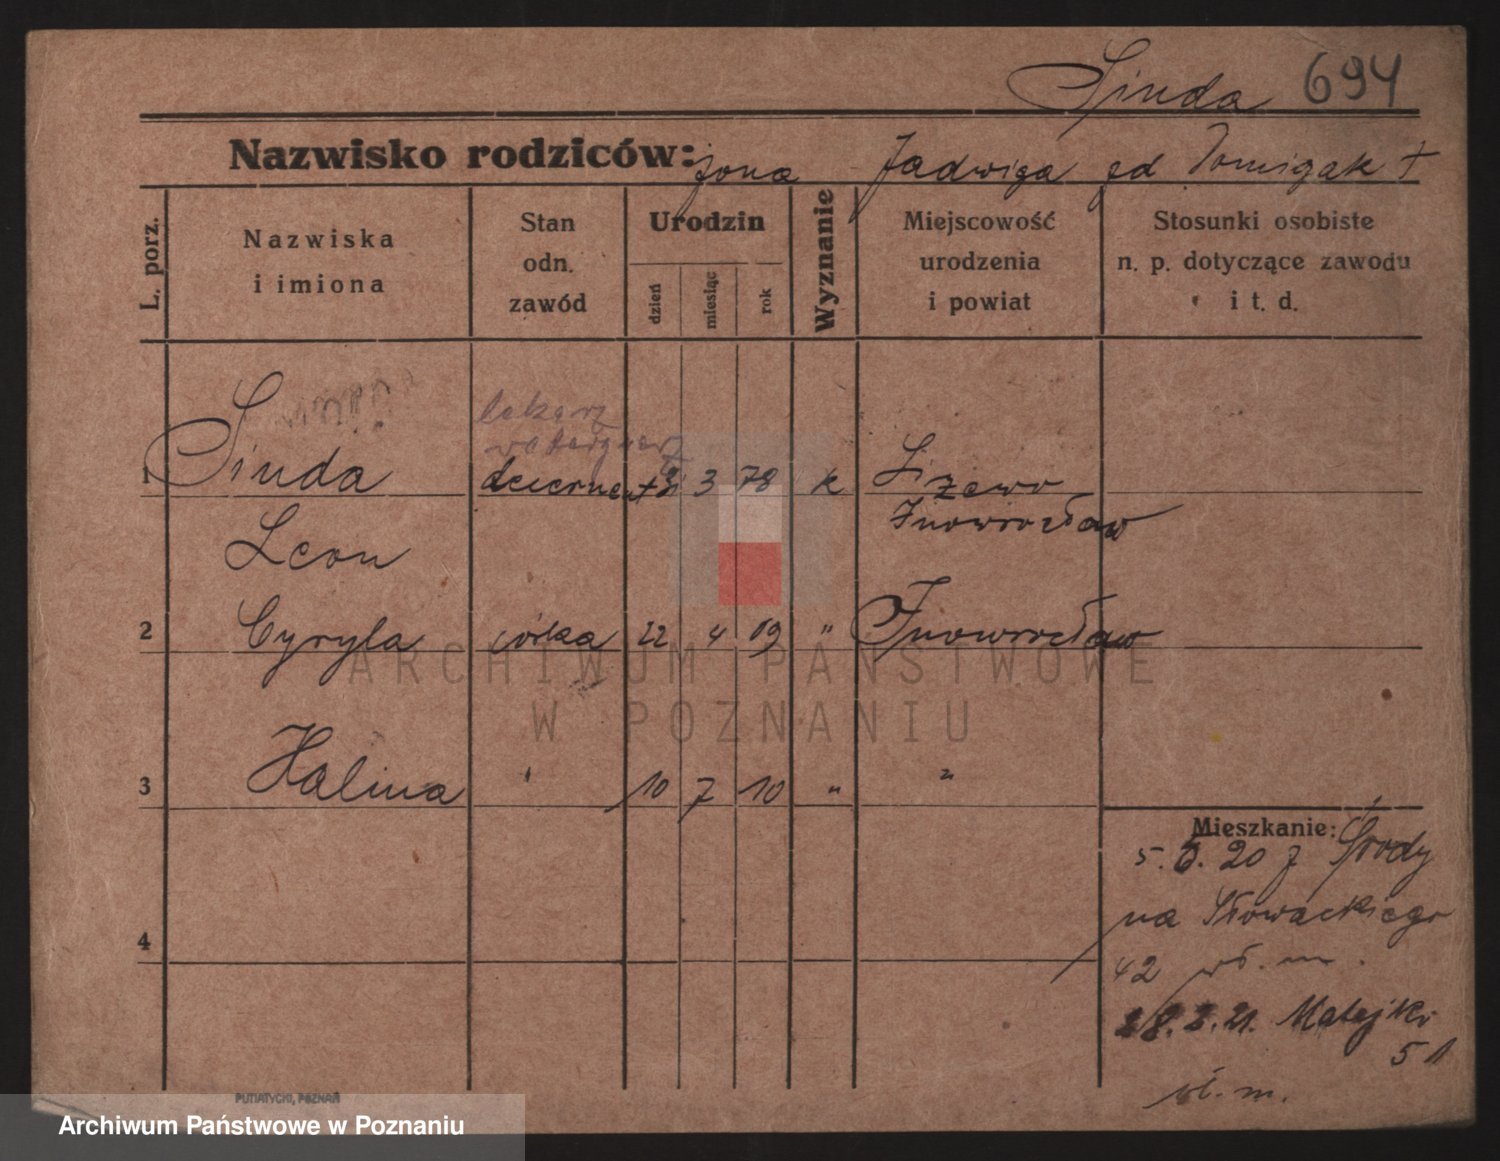 Sinda 694
Nazwisko rodziców: żona Jadwiga
L. porz.
Nazwiska
i imiona
Stan
odn.
zawód
Urodzin
dzień
miesiąc
rok
Wyznanie
Miejscowość
urodzenia
i powiat
Stosunki osobiste
n. p. dotyczące zawodu
i t. d.
lekarz
1 Sinda decernent 3 78 k
Inowrocław
Leon
2 Cyryla córka 22 4 09 " Inowrocław
3 Halina " 10 7 10 " "
4
Mieszkanie:
5. 5. 20 z Środy
na Słowackiego
42 wł. m.
28.2.21. Matejki
51
wł. m.
PUTIATYCKI, POZNAŃ
ARCHIWUM PAŃSTWOWE
W POZNANIU
Archiwum Państwowe w Poznaniu